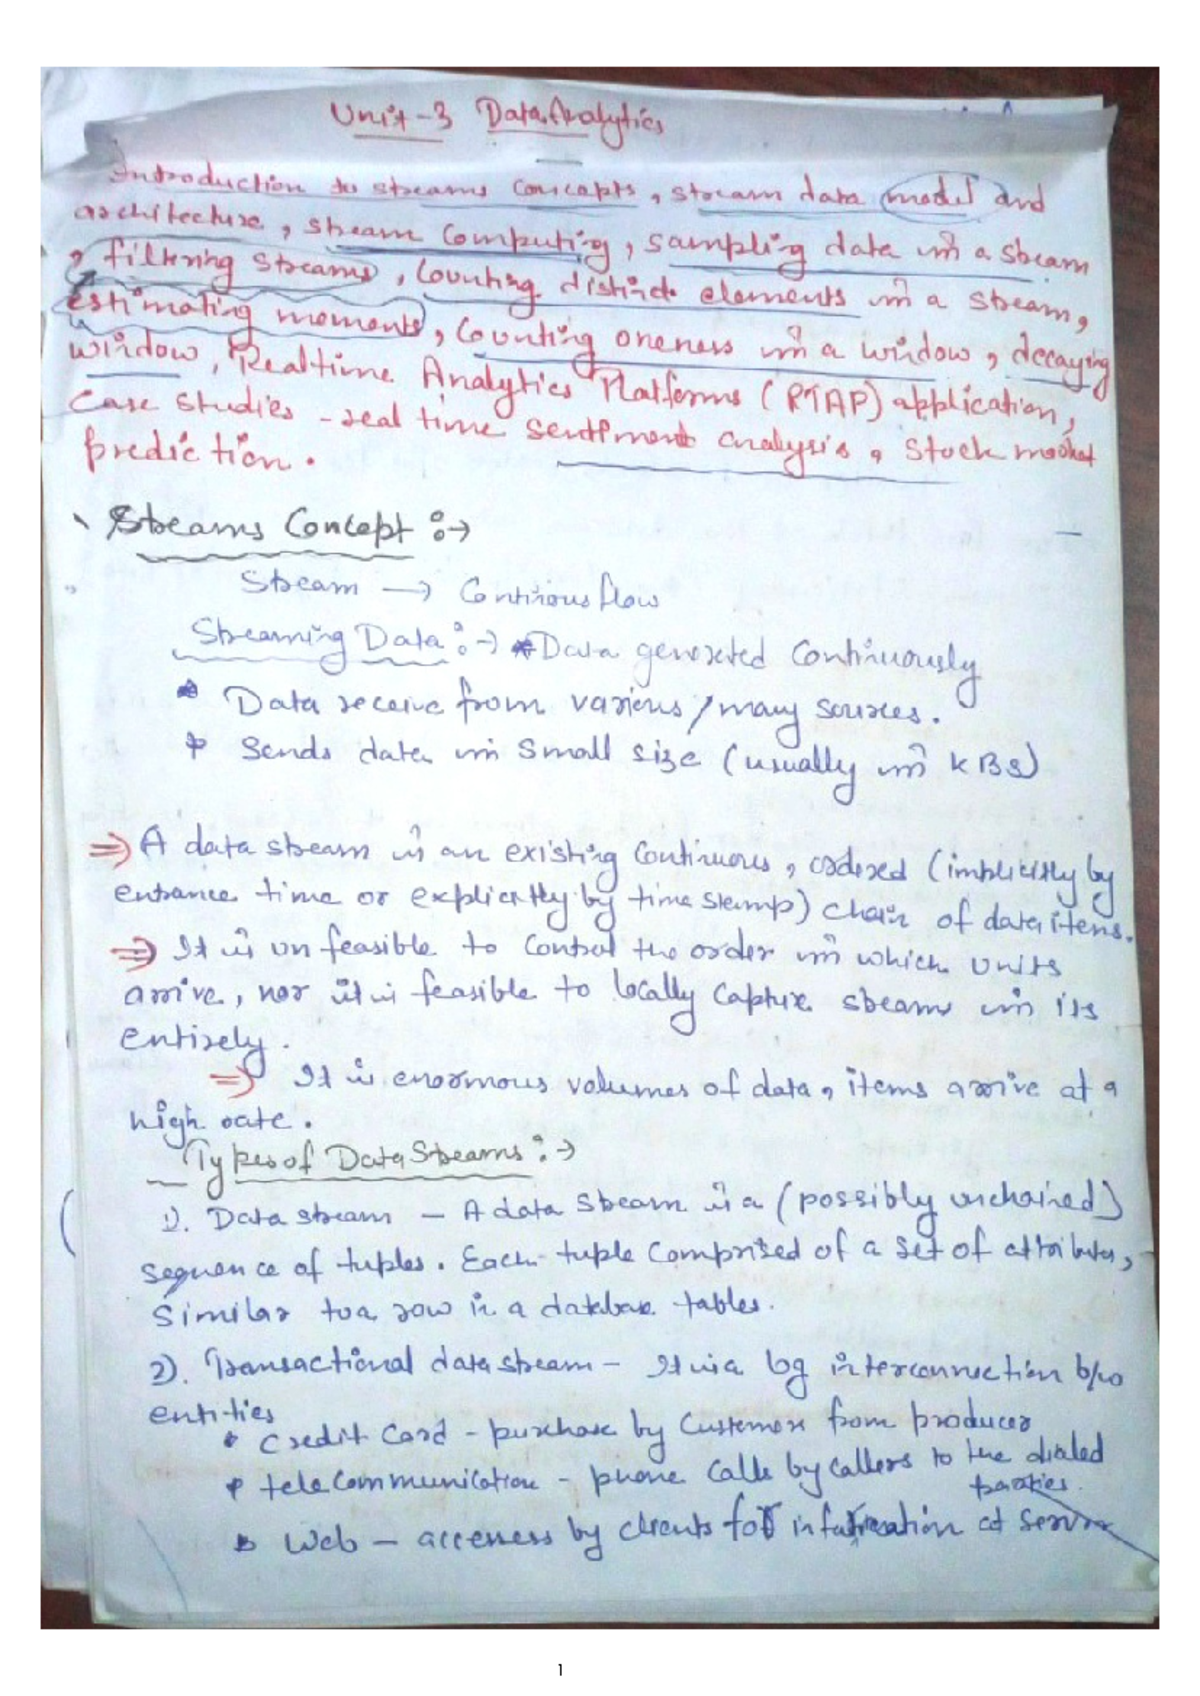 Unit-3 Data Analytics
Introduction to streams concepts, stream data model and
architecture, stream computing, sampling data in a stream
, filtering streams, counting distinct elements in a stream,
estimating moments, counting oneness in a window, decaying
window, Realtime Analytics Platforms (RTAP) application,
case studies - real time sentiment analysis, stock market
prediction.
Streams Concept :→
Stream → Continous flow
Streaming Data :→ * Data generated continuously
* Data receive from various/many sources.
* Sends data in small size (usually in KBs)
⇒ A data stream is an existing continuous, ordered (implicitly by
entrance time or explicitly by time stamp) chain of data items.
⇒ It is unfeasible to control the order in which units
arrive, nor it is feasible to locally capture stream in its
entirely.
⇒ It is enormous volumes of data, items arrive at a
high rate.
Types of Data Streams :→
1). Data stream - A data stream is a (possibly unchained)
sequence of tuples. Each tuple comprised of a set of attributes,
similar to a row in a database tables.
2). Transactional data stream - It is a log interconnection b/w
entities
* Credit Card - purchase by customers from producer
* telecommunication - phone calls by callers to the dialed
parties.
* Web - accesses by clients for information at server
1